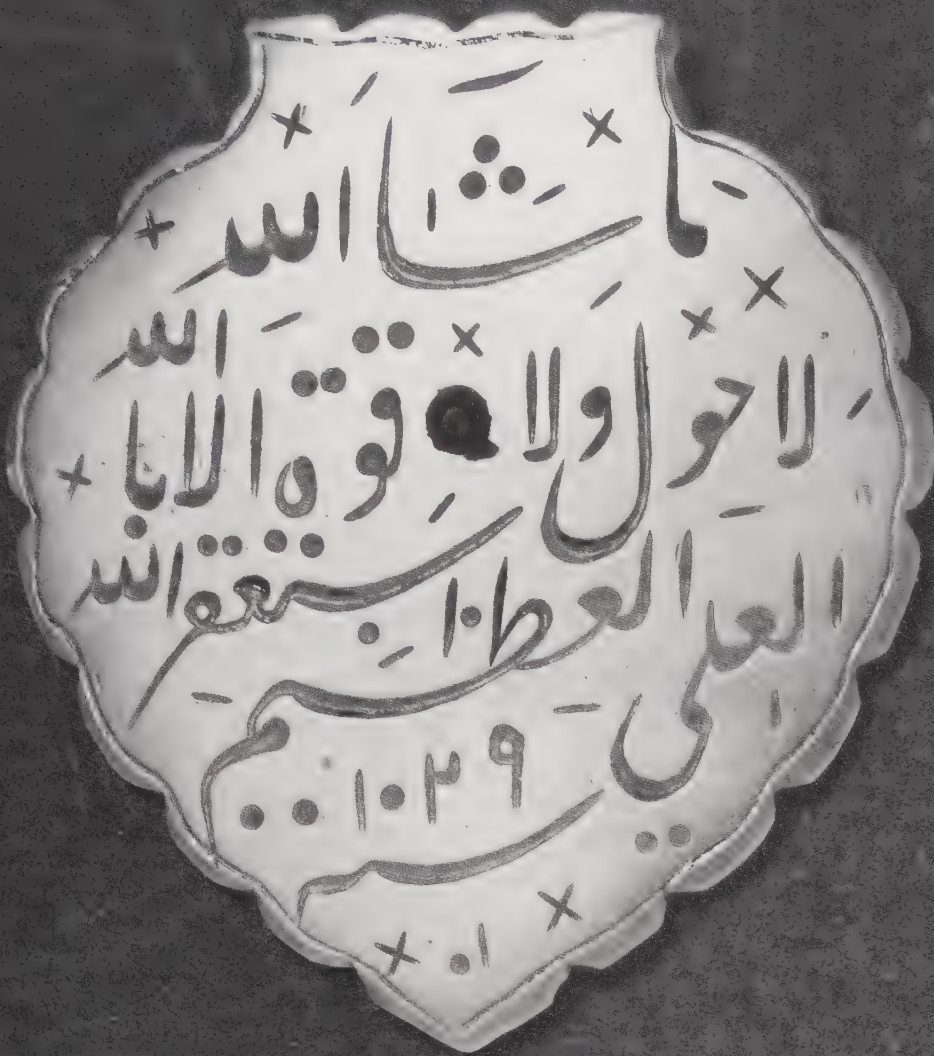 ما شا الله
لا حول ولا قوة الا با الله
العلي العظيم استغفر الله
١٠٢٩